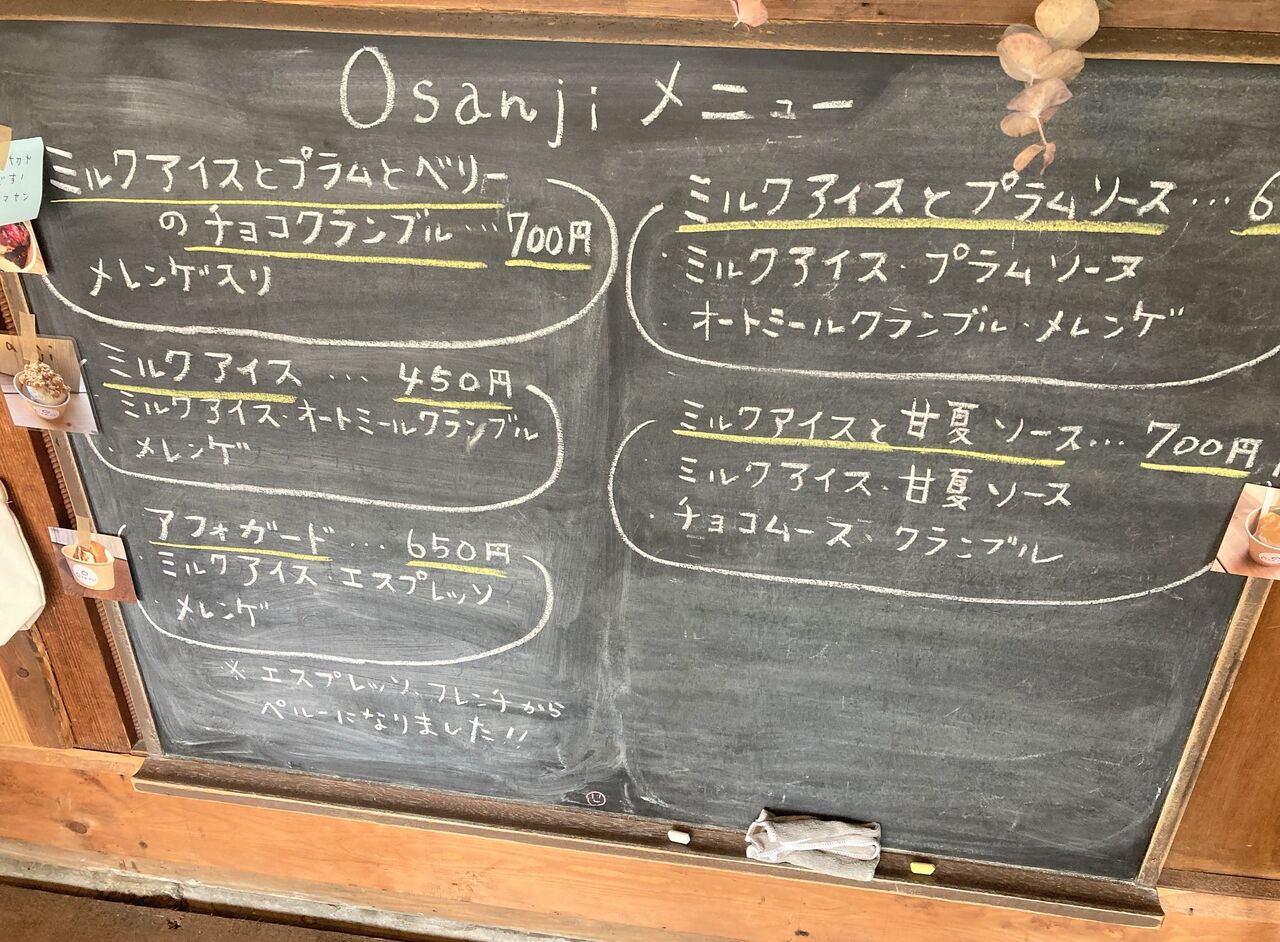 Osanji メニュー
ミルクアイスとプラムとベリー
のチョコクランブル…700円
メレンゲ入り
ミルクアイス … 450円
ミルクアイス・オートミールクランブル
・メレンゲ
アフォガード … 650円
・ミルクアイス・エスプレッソ
・メレンゲ
※エスプレッソ、フレンチから
ペルーになりました!!
ミルクアイスとプラムソース…6
・ミルクアイス・プラムソース
・オートミールクランブル・メレンゲ
ミルクアイスと甘夏ソース…700円
ミルクアイス・甘夏ソース
・チョコムース・クランブル